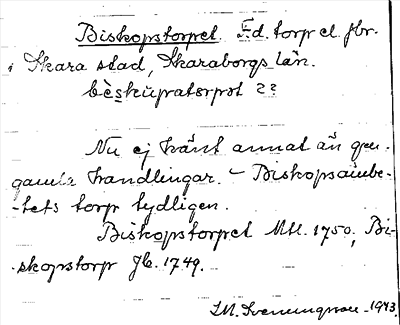 Biskopstorpet. Fd. torp el. fbr.
i Skara stad, Skaraborgs län.
bèskùpstorpst 22
Nu ej känt annat än gen.
gamla handlingar. - Biskopsämbe-
-tets torp tydligen.
Biskopstorpet Mtl. 1750, Bi-
-skopstorp Jb. 1749.
I.M. Svenungsson -1943.